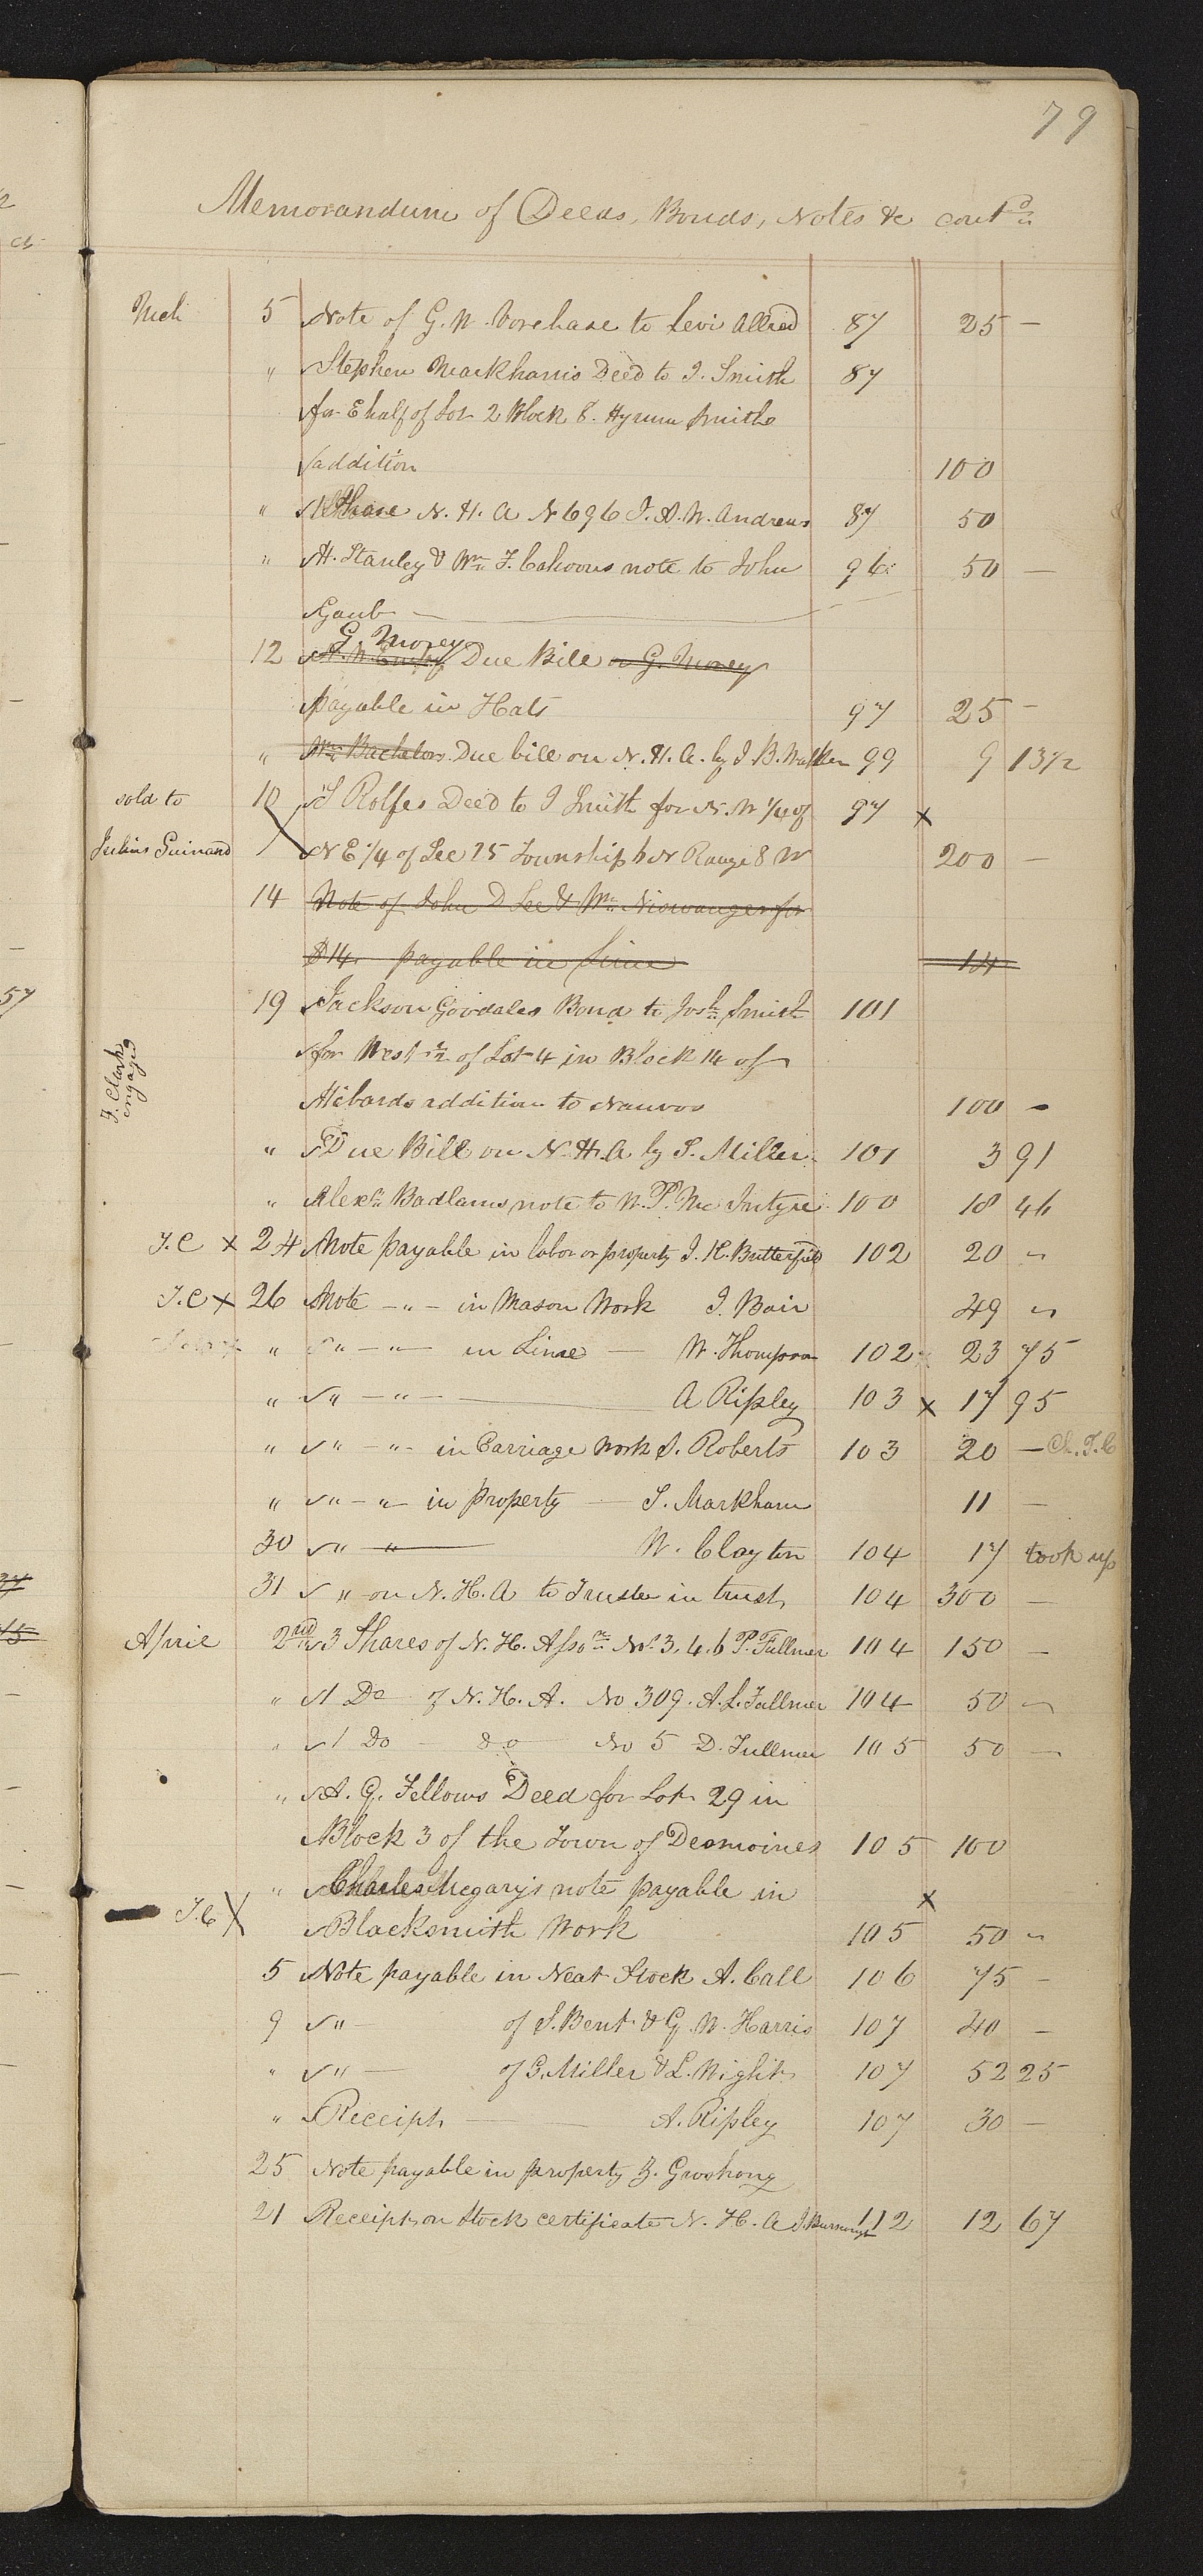 79
Memorandum of Deeds, Bonds, Notes &c cont.d
Mch 5 Note of G. W. Vorehase to Levi Allred 87 25 —
" Stephen Markham's Deed to J. Smith 87
for E half of Lot 2 Block 8. Hyrum Smiths
addition 100
" 1 Share N. H. A N 696 J. A. W. Andrews 87 50
" H. Stanley & Wm. F. Cahoons note to John 96 50 —
Gaub —
G. Morey
12 Due Bill on G. Morey
payable in Hats 97 25 —
" Wm. Bachelors Due bill on N. H. A. by J. B. Walker 99 9 13 1/2
sold to 10 S Rolfes Deed to J Smith for N. W 1/4 of 97 x
Julius Guinand N E 1/4 of Sec 25 Township 6 N Range 8 W 200 —
14 Note of John D Lee & Wm. Niswanger for
$14. payable in Lime 14
19 Jackson Goodales Bond to Josh. Smith 101
for West 1/2 of Lot 4 in Block 14 of
J. Clark engaged
Hibards addition to Nauvoo 100 —
" Due Bill on N. H. A by S. Miller 101 3 91
" Alexr. Badlams note to W. P. Mc Intyre 100 18 46
J. C x 24 Note payable in labor or property J. K. Butterfield 102 20 "
J. C x 26 Note — " — in Mason Work J. Bair 49 "
" " — " — in Lime — W. Thompson 102 23 75
" " — " — A Ripley 103 x 17 95
" " — " — in Carriage Work S. Roberts 103 20 — Ch. J. C
" " — " — in property — S. Markham 11 —
30 " " W. Clayton 104 17 took up
31 " on N. H. A to Trustee in trust 104 300 —
April 2nd 3 Shares of N. H. Asson. No. 3. 4. 6 P. Fullmer 104 150 —
" 1 Do of N. H. A. No 309. A. L. Fullmer 104 50 —
" 1 Do do No 5 D. Fullmer 105 50 —
" A. G. Fellows Deed for Lot 29 in
Block 3 of the Town of Desmoines 105 100
" Charles Megary's note payable in x
J. C X Blacksmith Work 105 50 "
5 Note payable in Neat Stock A. Call 106 75 —
9 " — of S. Bent & G. W. Harris 107 40 —
" " — of G. Miller & L. Wight 107 52 25
" Receipt — A. Ripley 107 30 —
25 Note payable in property J. Groshong
21 Receipt on Stock certificate N. H. A J. 112 12 67